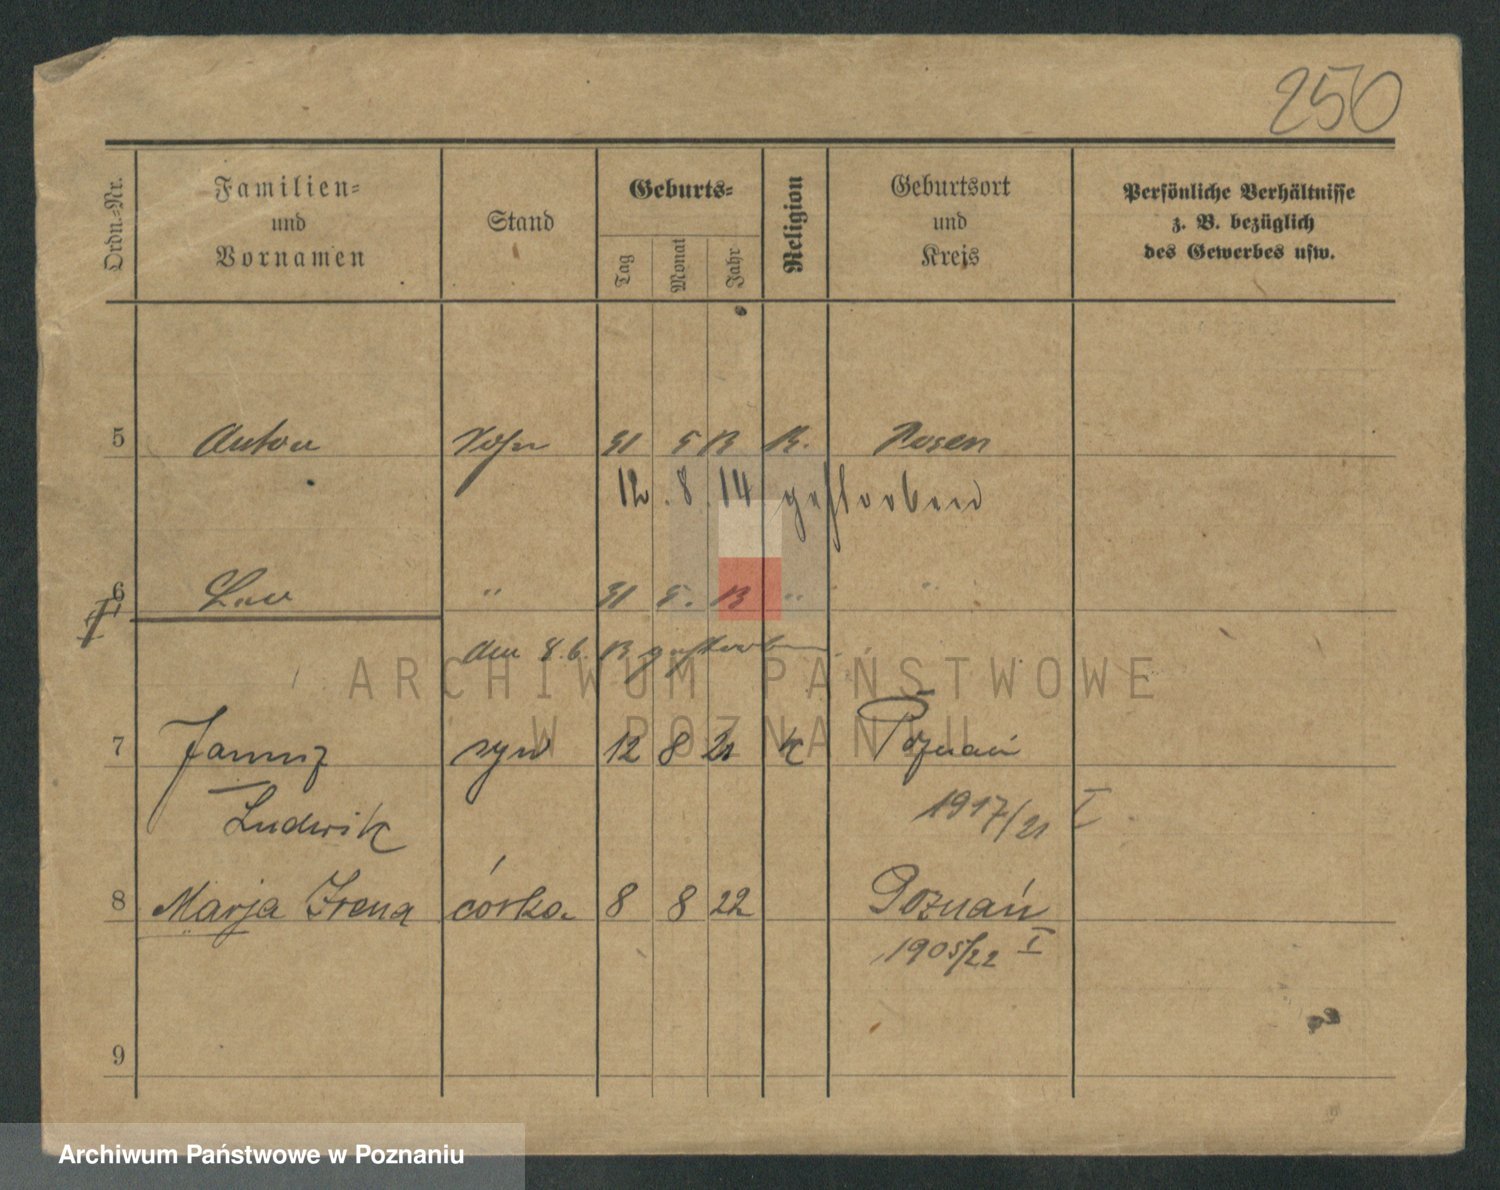 250
Ordn.-Nr.
Familien-
und
Vornamen
Stand
Geburts-
Tag
Monat
Jahr
Religion
Geburtsort
und
Kreis
Persönliche Verhältnisse
z. B. bezüglich
des Gewerbes usw.
5 Anton Sohn 31 5 13 K. Posen
12. 8. 14 gestorben
6 Leo " 31 5. 13 " "
am 8.6.13 gestorben.
ARCHIWUM PAŃSTWOWE
W POZNANIU
7 Janusz syn 12 8 21 k Poznań
Ludwik 1917/21 I
8 Marja Irena córka 8 8 22 Poznań
1905/22 I
9
Archiwum Państwowe w Poznaniu